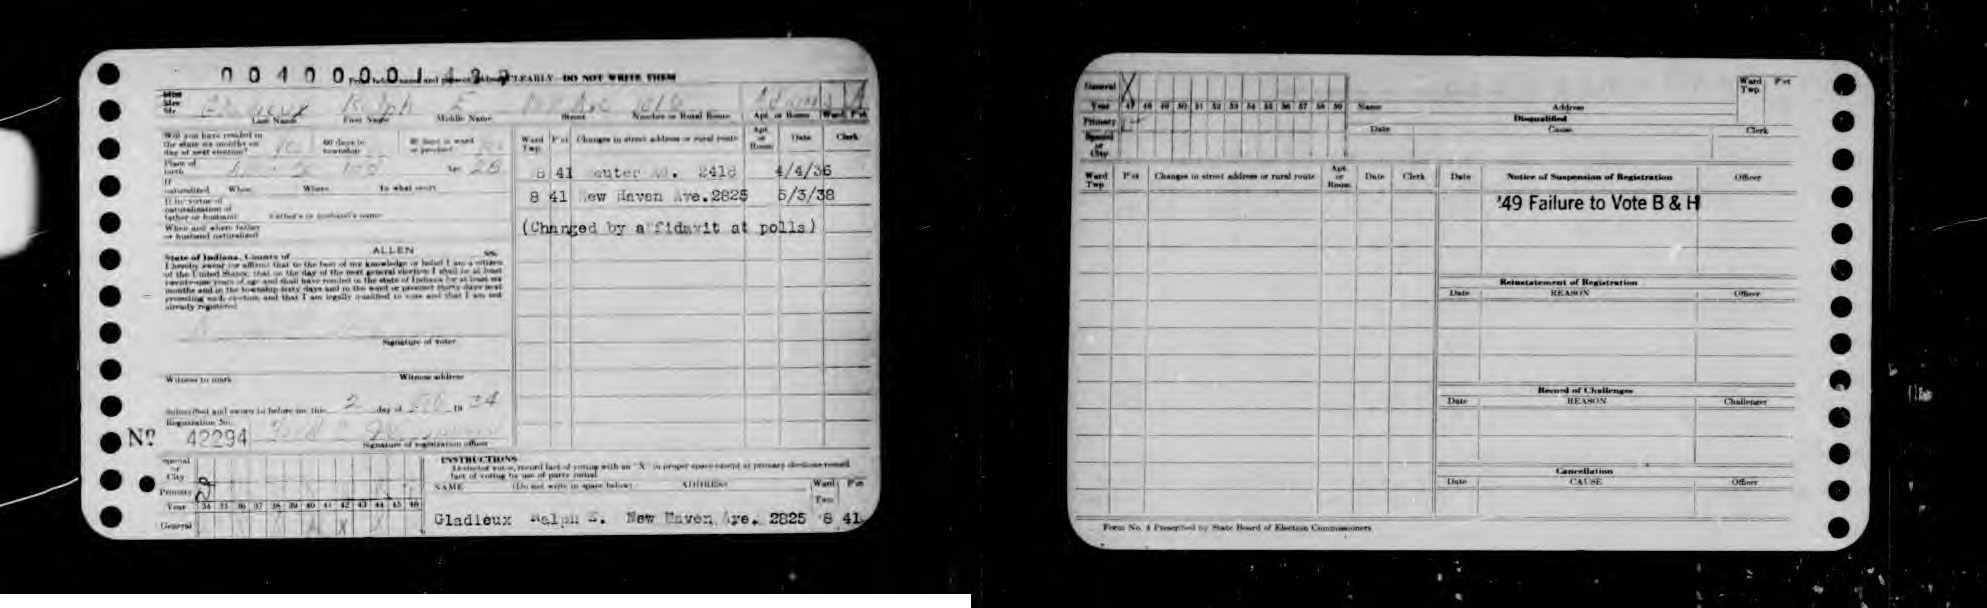 0040000143
CLEARLY—DO NOT WRITE THEM
Miss
Mrs
Mr.
Gladieux Ralph E
Last Name First Name Middle Name Street Number or Rural Route Apt. or Room Ward Pct
Will you have resided in the state six months on day of next election? 60 days in township 30 days in ward or precinct
Place of birth Age 28
If naturalized When Where To what court
If by virtue of naturalization of father or husband Father's or husband's name
When and where father or husband naturalized
State of Indiana, County of ALLEN SS:
I hereby swear (or affirm) that to the best of my knowledge or belief I am a citizen
of the United States; that on the day of the next general election I shall be at least
twenty-one years of age and shall have resided in the state of Indiana for at least six
months and in the township sixty days and in the ward or precinct thirty days next
preceding such election; and that I am legally qualified to vote and that I am not
already registered
Signature of voter
Witness to mark Witness address
Subscribed and sworn to before me this 2 day of 19 34
Registration No.
Nº 42294
Signature of registration officer
Ward Twp. P'ct Changes in street address or rural route Apt. or Room Date Clerk
8 41 2418 4/4/36
8 41 New Haven Ave. 2825 5/3/38
(Changed by affidavit at polls)
Special or City
Primary
Year 34 35 36 37 38 39 40 41 42 43 44 45 46
General
INSTRUCTIONS
record fact of voting with an "X" in proper space except at primary elections record
fact of voting by use of party initial
NAME (Do not write in space below) ADDRESS Ward Twp. P'ct
Gladieux Ralph E. New Haven Ave. 2825 8 41
General X
Year 47 48 49 50 51 52 53 54 55 56 57 58 59
Primary
Special or City
Name Address Ward Twp. P'ct
Disqualified
Date Cause Clerk
Ward Twp. P'ct Changes in street address or rural route Apt. or Room Date Clerk
Date Notice of Suspension of Registration Officer
'49 Failure to Vote B & H
Reinstatement of Registration
Date REASON Officer
Record of Challenges
Date REASON Challenger
Cancellation
Date CAUSE Officer
Form No. 4 Prescribed by State Board of Election Commissioners